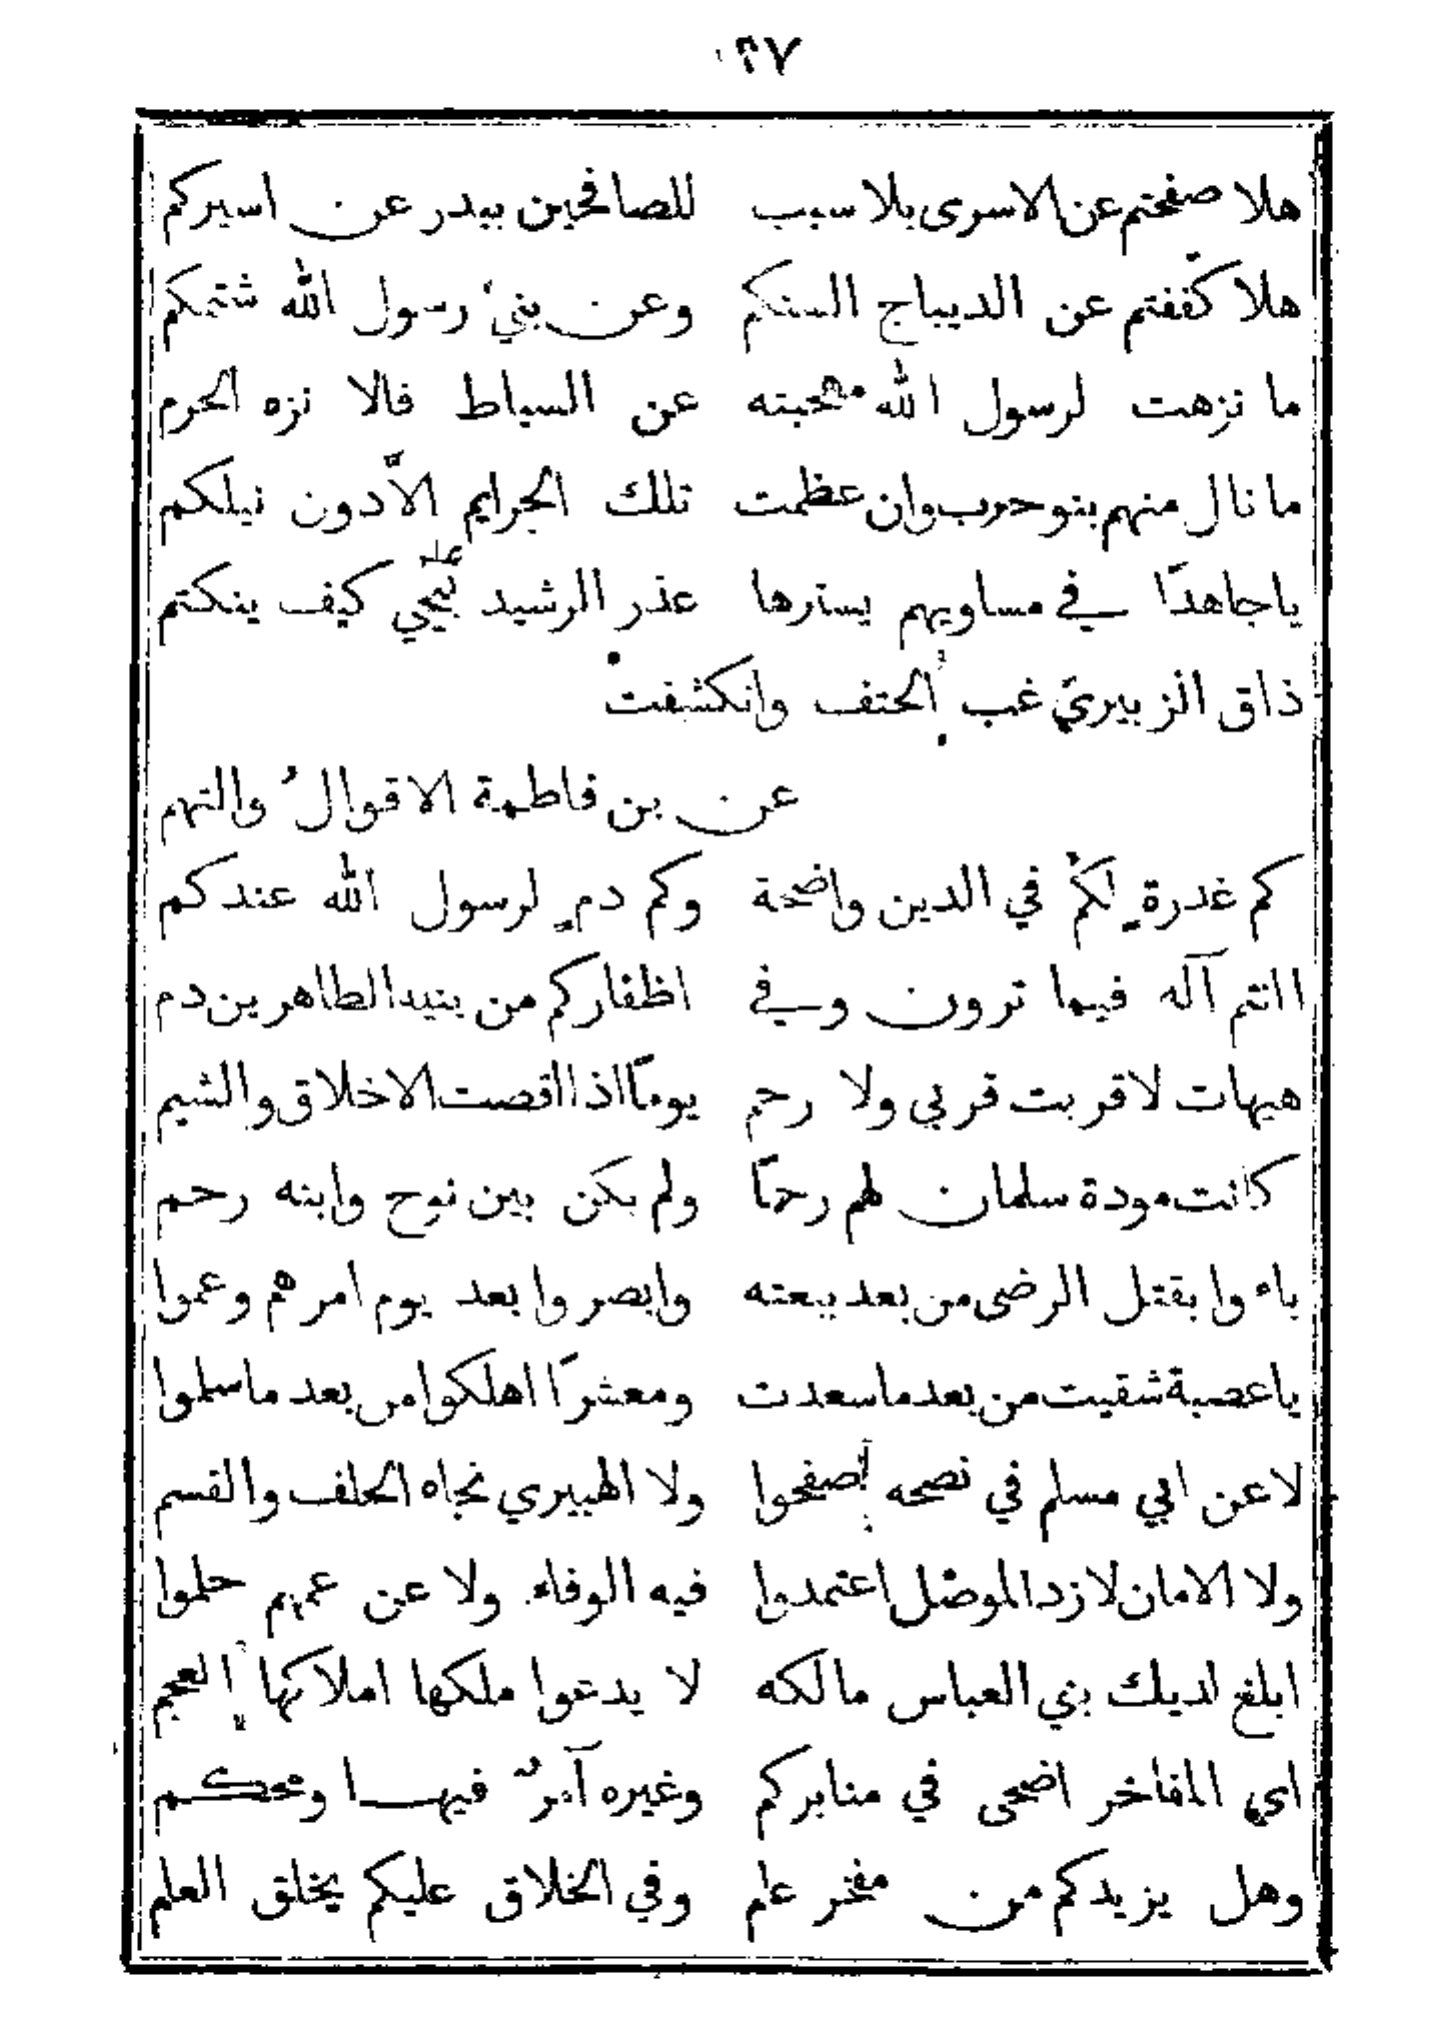 ٢٧
هلا صفحتم عن الاسرى بلا سبب للصافحين ببدر عن اسيركم
هلا كففتم عن الديباج السنكم وعن بني رسول الله شتمكم
ما نزهت لرسول الله مهجته عن السياط فالا نزه الحرم
ما نال منهم بنو حرب وان عظمت تلك الجرايم الّا دون نيلكم
يا جاهدًا في مساويهم يسترها عذر الرشيد بيحيي كيف ينكتم
ذاق الزبيري غب الحتف وانكشفت
عن بن فاطمة الاقوالُ والتهم
كم غدرةٍ لكمُ في الدين واضحة وكم دمٍ لرسول الله عندكم
اانتم آله فيما ترون وفي اظفاركم من بنيه الطاهرين دم
هيهات لا قربت قربي ولا رحم يومًا اذا اقصت الاخلاق والشيم
كانت مودة سلمان لهم رحمًا ولم يكن بين نوح وابنه رحم
باءوا بقتل الرضى من بعد بيعته وابصروا بعد يوم امرهم وعموا
يا عصبة شقيت من بعد ما سعدت ومعشرًا اهلكوا من بعد ما سلموا
لا عن ابي مسلم في نصحه صفحوا ولا الهبيري نجاه الحلف والقسم
ولا الامان لازد الموصل اعتمدوا فيه الوفاء ولا عن عمهم حلموا
ابلغ لديك بني العباس مالكه لا يدعوا ملكها املاكها العجم
اي المفاخر اضحى في منابركم وغيره آمرٌ فيها ومحكم
وهل يزيدكم من مفخر علم وفي الخلاق عليكم يخلق العلم